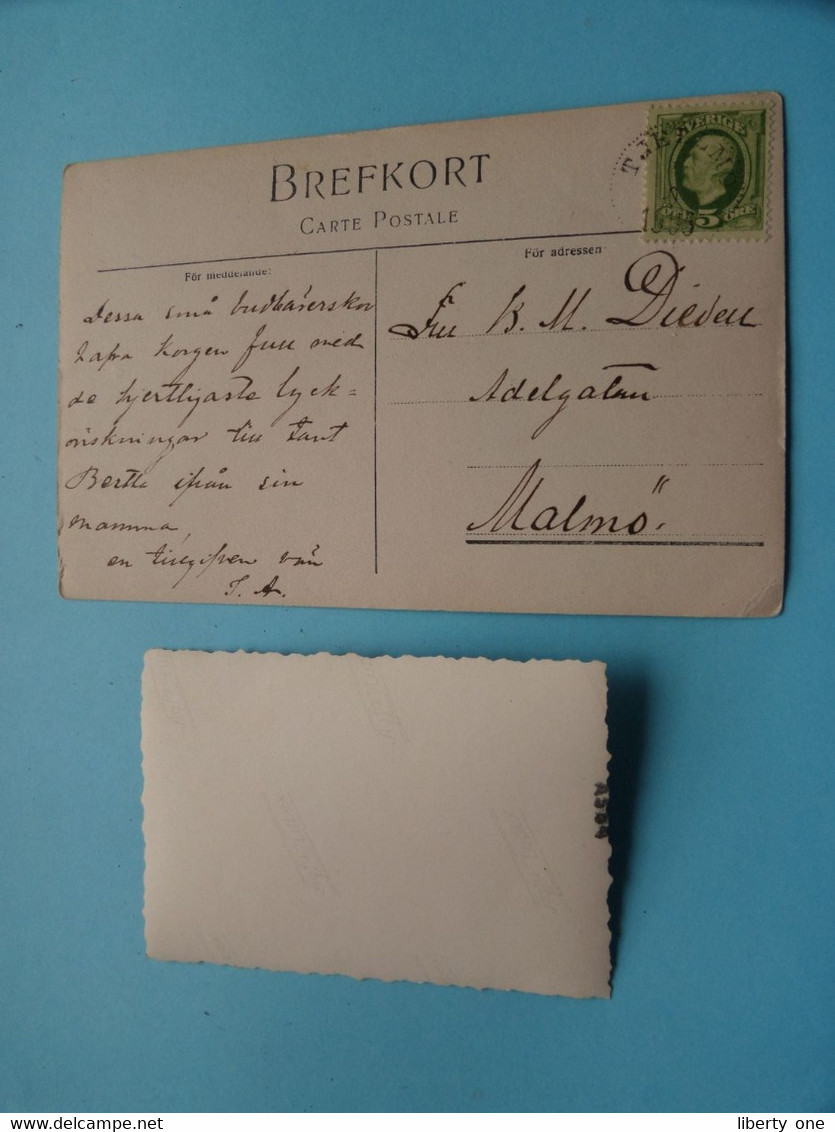 BREFKORT
CARTE POSTALE
SVERIGE
5
ÖRE
För meddelande:
För adressen:
Dessa små budbärerskor
korgen full med
de hjertligaste lyck=
önskningar till tant
Bertha ifrån sin
mamma,
en tillgifven vän
T. A.
Fru B. M. Dieden
Adelgatan
Malmö.
A584
Delcampe.net
liberty one